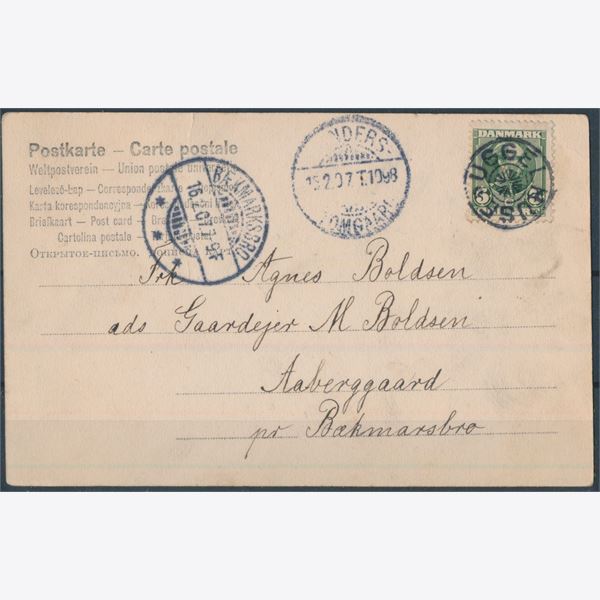 Postkarte – Carte postale
Weltpostverein – Union postale universelle
Levelező-Lap – Correspondenzkarte
Karta korespondencyjna
Briefkaart – Post card – Brefkort
Cartolina postale
Открытое письмо.
BÆKMARKSBRO
16.2.07
NDERS-
15.2.07 T.1098
DANMARK
5
Frk Agnes Boldsen
ads Gaardejer M Boldsen
Aaberggaard
pr Bækmarsbro